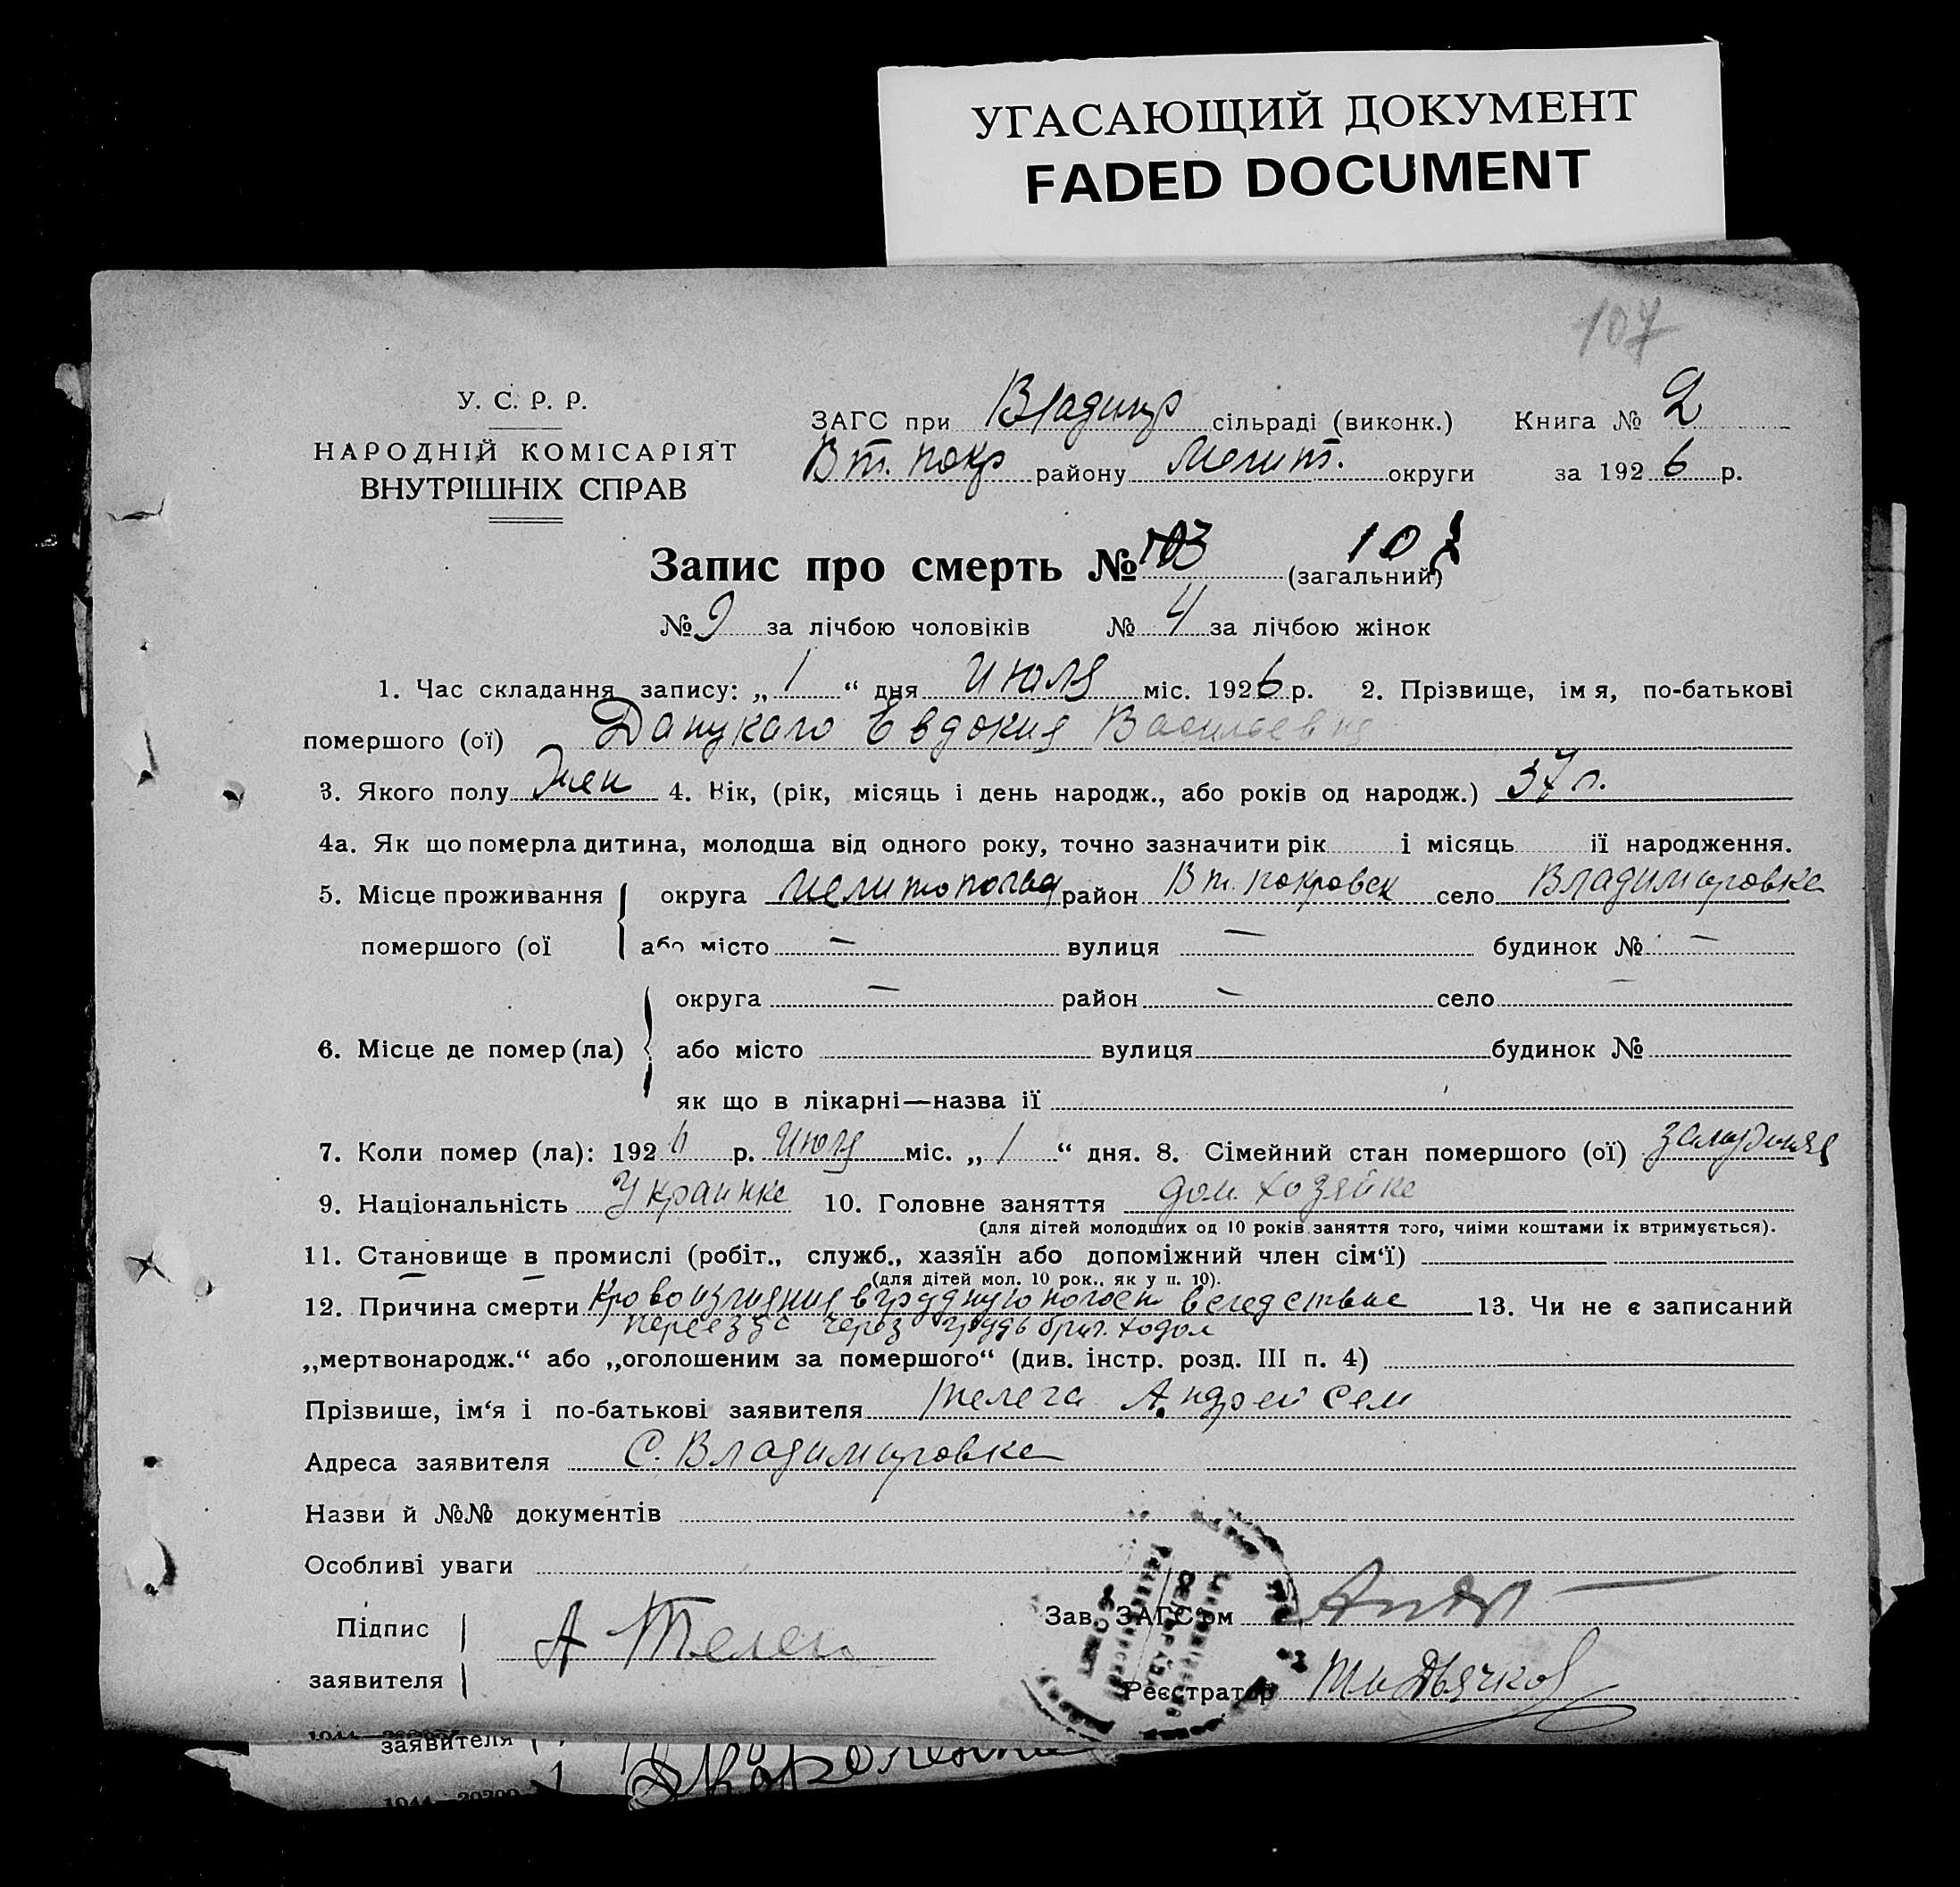 УГАСАЮЩИЙ ДОКУМЕНТ
FADED DOCUMENT
107
У. С. Р. Р.
НАРОДНІЙ КОМІСАРІЯТ
ВНУТРІШНІХ СПРАВ
ЗАГС при Владимр сільраді (виконк.) Книга № 2
Вт. покр району Мелит. округи за 1926 р.
Запис про смерть № 103 10 (загальний)
№ 9 за лічбою чоловіків № 4 за лічбою жінок
1. Час складання запису: „ 1 “ дня Июля міс. 1926 р. 2. Прізвище, імя, по-батькові
помершого (ої) Евдокия Васильевна
3. Якого полу Жен 4. Вік, (рік, місяць і день народж., або років од народж.) 37 л.
4а. Як що померла дитина, молодша від одного року, точно зазначити рік і місяць ії народження.
5. Місце проживання округа Мелитопольс район Вт. покровск село Владимировка
помершого (ої або місто — вулиця — будинок № —
округа — район — село —
6. Місце де помер (ла) або місто вулиця будинок №
як що в лікарні—назва ії
7. Коли помер (ла): 1926 р. Июля міс. „ 1 “ дня. 8. Сімейний стан помершого (ої) замужняя
9. Національність Украинка 10. Головне заняття дом. хозяйка
(для дітей молодших од 10 років заняття того, чиїми коштами їх втримується).
11. Становище в промислі (робіт., служб., хазяїн або допоміжний член сім‘ї)
(для дітей мол. 10 рок., як у п. 10).
12. Причина смерти Кровоизлияния в грудную полость вследствие 13. Чи не є записаний
переезда через грудь ходом
„мертвонародж.“ або „оголошеним за помершого“ (див. інстр. розд. III п. 4)
Прізвише, ім‘я і по-батькові заявителя Телега Андрей Сем
Адреса заявителя С. Владимировка
Назви й №№ документів
Особливі уваги
Підпис
заявителя А Телега
Зав. ЗАГС‘ом
Реєстратор Дьячков
заявителя